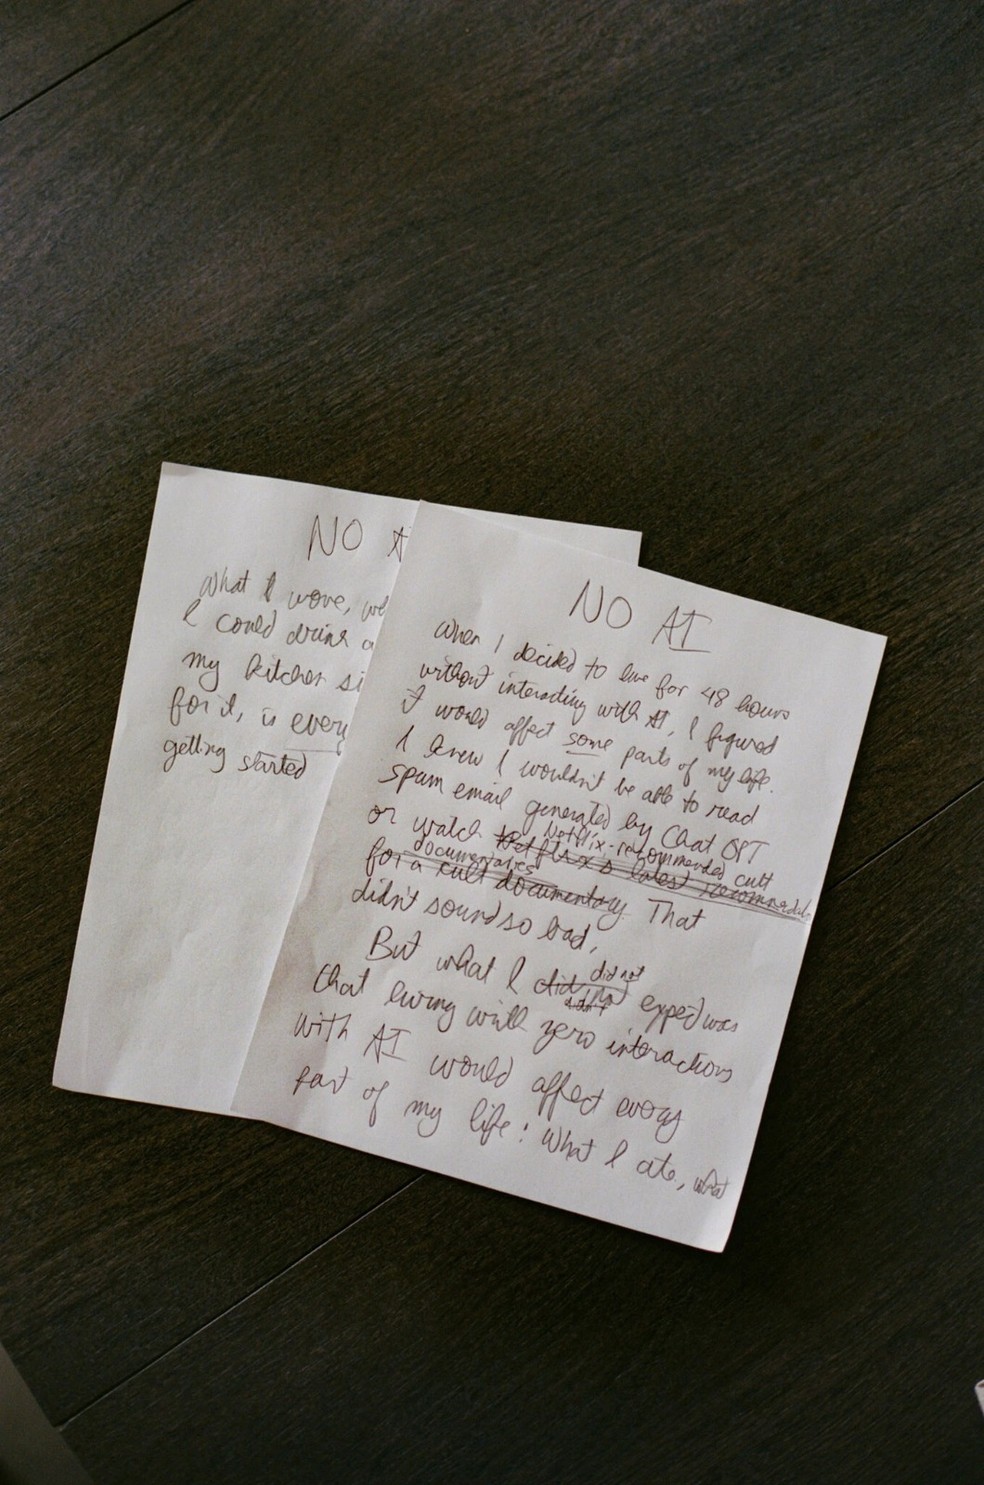 NO AI
When I decided to live for 48 hours
without interacting with AI, I figured
it would affect some parts of my life.
I knew I wouldn't be able to read
spam email generated by Chat GPT
or watch Netflix-recommended cult
documentaries
for a cult documentary. That
didn't sound so bad.
But what I did not expect was
that living with zero interactions
with AI would affect every
part of my life: What I ate, what
NO A
What I wore,
I could drink
my kitchen
for it, is every
getting started